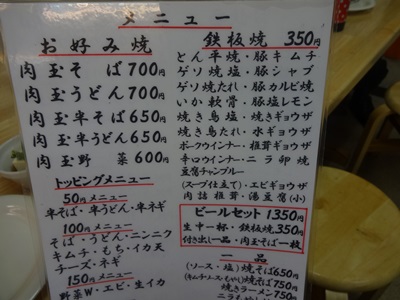 メニュー
お好み焼
肉玉そば700円
肉玉うどん700円
肉玉半そば650円
肉玉半うどん650円
肉玉野菜600円
トッピングメニュー
50円メニュー
半そば・半うどん・半ネギ
100円メニュー
そば・うどん・ニンニク
キムチ・もち・イカ天
チーズ・ネギ
150円メニュー
野菜W・エビ・生イカ
鉄板焼 350円
とん平焼・豚キムチ
ゲソ焼塩・豚シャブ
ゲソ焼たれ・豚カルビ焼
いか軟骨・豚塩レモン
焼き鳥塩・焼きギョウザ
焼き鳥たれ・水ギョウザ
ポークウインナー・椎茸ギョウザ
辛口ウインナー・ニラ卵焼
豆腐チャンプルー
(スープ仕立て)・エビギョウザ
肉詰椎茸・湯豆腐(小)
ビールセット 1350円
生中一杯・鉄板焼350円
付き出し一品・肉玉そば一枚
一品
(ソース・塩)焼そば650円
焼そば750円
焼きラーメン750円